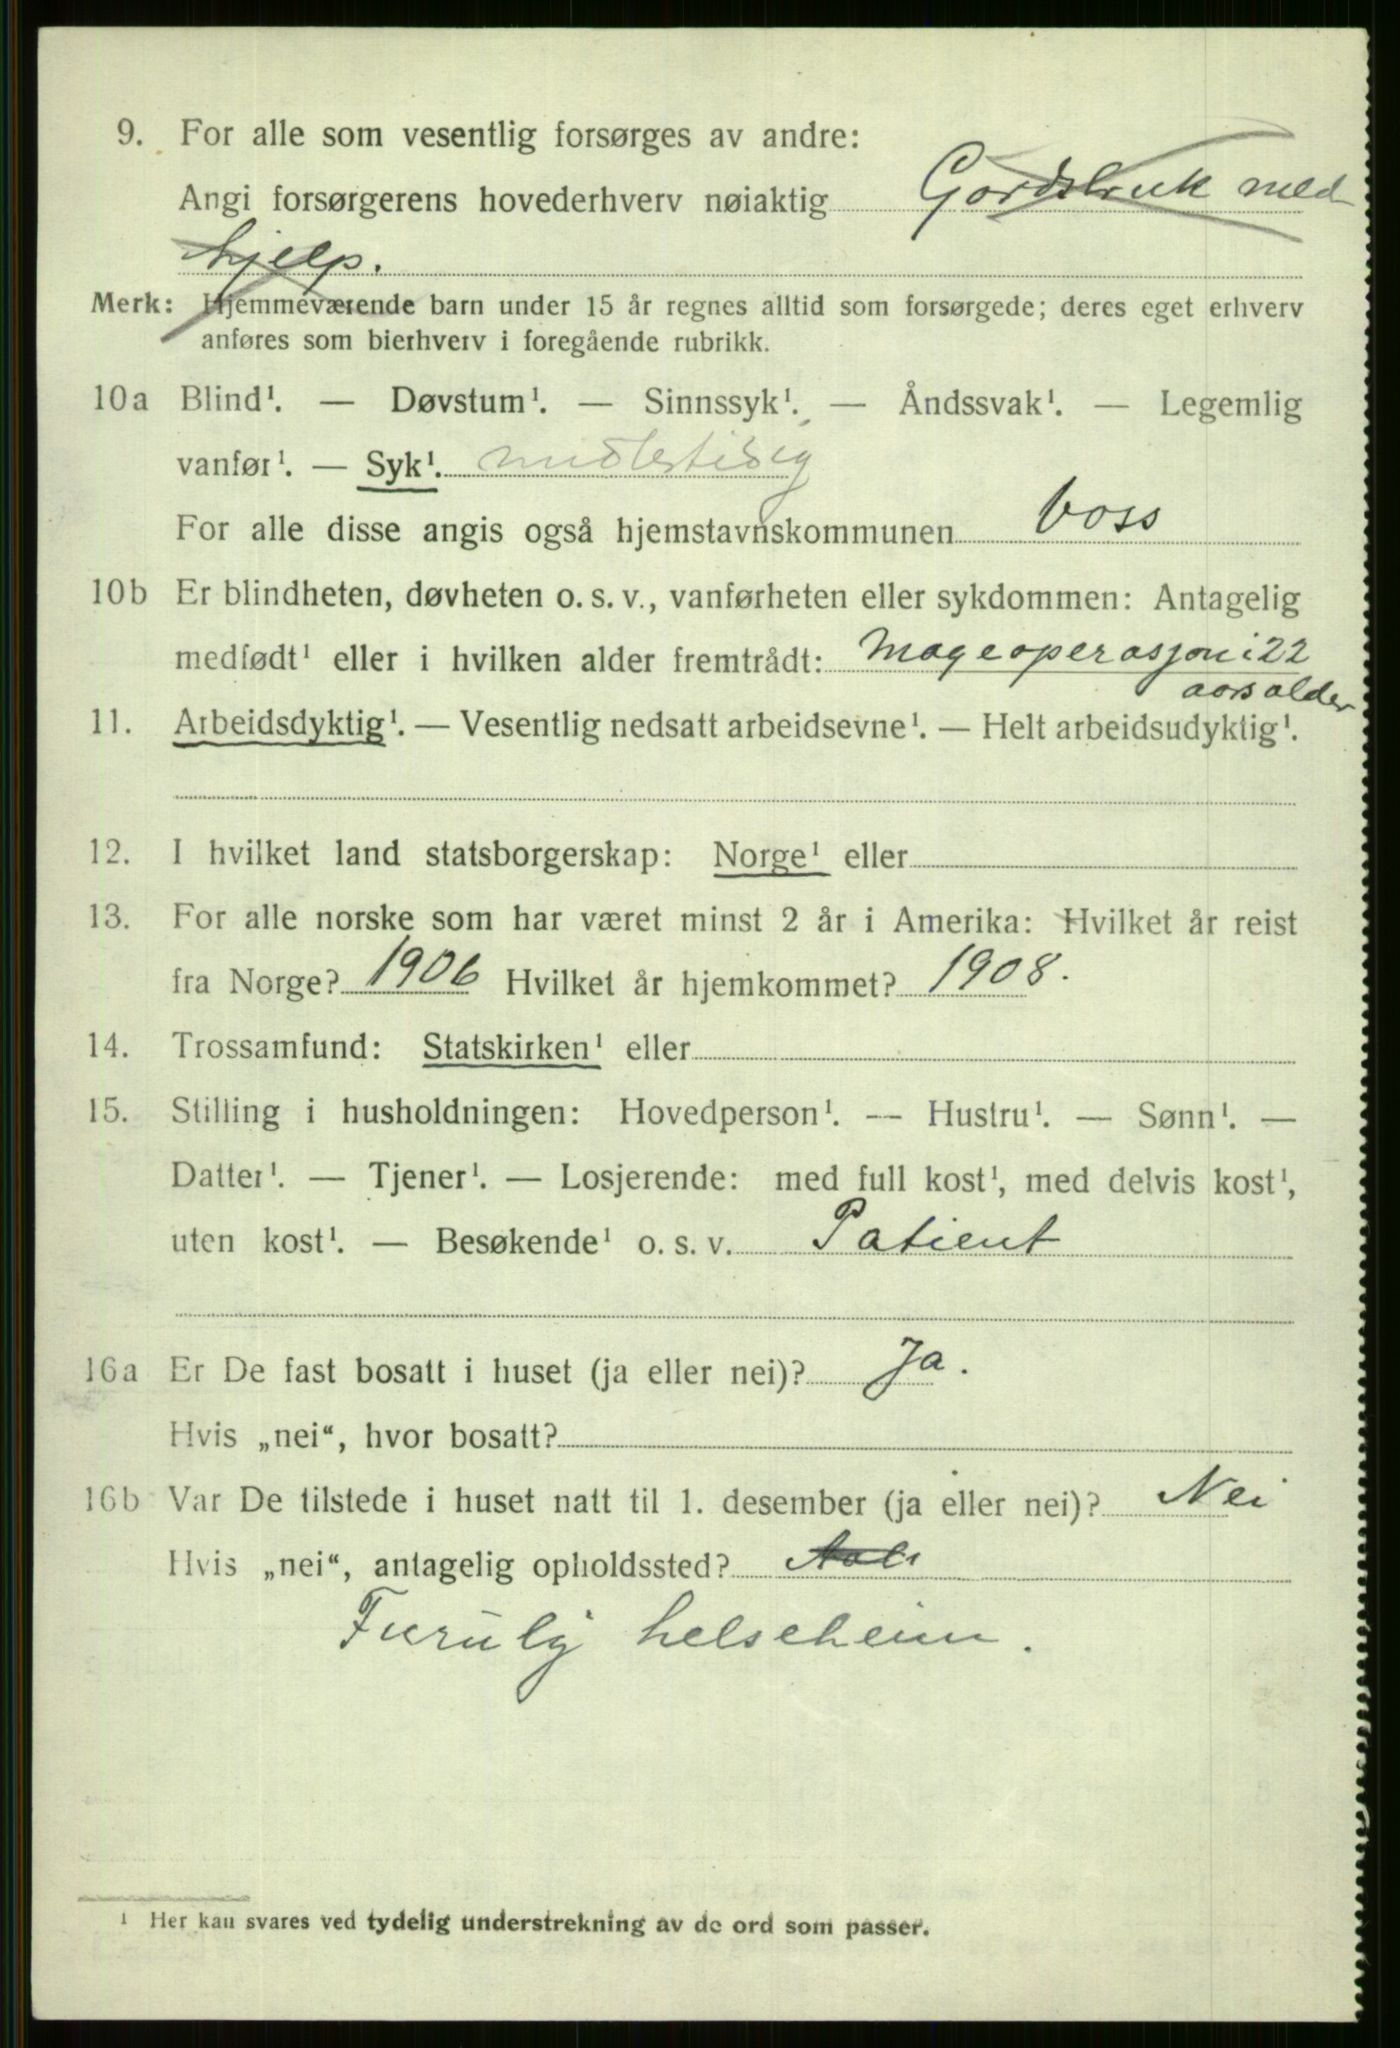 9. For alle som vesentlig forsørges av andre:
Angi forsørgerens hovederhverv nøiaktig Gordsbruk med
hjelp.
Merk: Hjemmeværende barn under 15 år regnes alltid som forsørgede; deres eget erhverv
anføres som bierhverv i foregående rubrikk.
10a Blind¹. — Døvstum¹. — Sinnssyk¹. — Åndssvak¹. — Legemlig
vanfør¹. — Syk¹. midlertidig
For alle disse angis også hjemstavnskommunen Voss
10b Er blindheten, døvheten o. s. v., vanførheten eller sykdommen: Antagelig
medfødt¹ eller i hvilken alder fremtrådt: Mageoperasjon i 22
aarsalder
11. Arbeidsdyktig¹. — Vesentlig nedsatt arbeidsevne¹. — Helt arbeidsudyktig¹.
12. I hvilket land statsborgerskap: Norge¹ eller
13. For alle norske som har været minst 2 år i Amerika: Hvilket år reist
fra Norge? 1906 Hvilket år hjemkommet? 1908.
14. Trossamfund: Statskirken¹ eller
15. Stilling i husholdningen: Hovedperson¹. — Hustru¹. — Sønn¹. —
Datter¹. — Tjener¹. — Losjerende: med full kost¹, med delvis kost¹,
uten kost¹. — Besøkende¹ o. s. v. Patient
16a Er De fast bosatt i huset (ja eller nei)? Ja.
Hvis „nei“, hvor bosatt?
16b Var De tilstede i huset natt til 1. desember (ja eller nei)? Nei
Hvis „nei“, antagelig opholdssted?
Furuly helseheim.
¹ Her kan svares ved tydelig understrekning av de ord som passer.